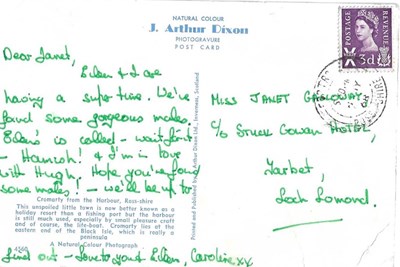 NATURAL COLOUR
J. Arthur Dixon
PHOTOGRAVURE
POST CARD
POSTAGE
REVENUE
3d
Dear Janet,
Eileen & I are
having a super time. We've
found some gorgeous males.
Eileen's is called - wait for it
- Hamish! & I'm in love
with Hugh. Hope you've found
some males! - we'll be up to
find out - love to you & Eileen, Caroline xx
MISS JANET GALLOWAY,
c/o STUCK GOWAN HOTEL,
Tarbet,
Loch Lomond.
Printed and Published by J. Arthur Dixon Ltd., Inverness, Scotland
Cromarty from the Harbour, Ross-shire
This unspoiled little town is now better known as a
holiday resort than a fishing port but the harbour
is still much used, especially by small pleasure craft
and of course, the life-boat. Cromarty lies at the
eastern end of the Black Isle, which is really a
peninsula
A Natural Colour Photograph